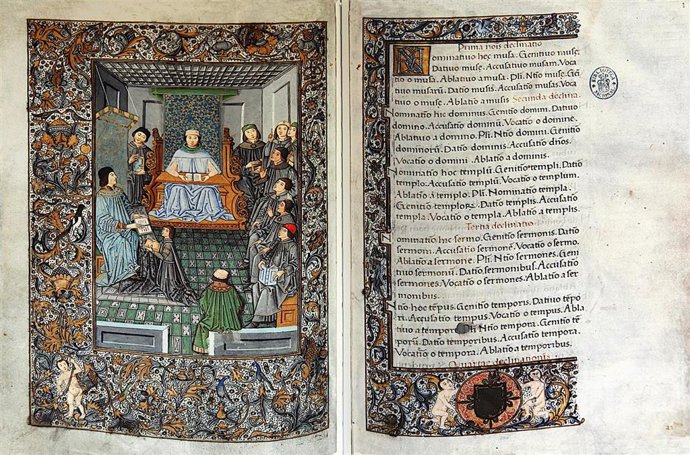 Prima nois declinatio
Nominatiuo hec musa. Genitiuo muse.
Datiuo muse. Accusatiuo musam. Voca
tio o musa. Ablatiuo a musa. Pli. Ntio muse. Geni
tiuo musarū. Datio musis. Accusatio musas. Voca
tiuo o muse. Ablatio a musis Secunda declina.
Nominatio hic dominus. Genitio domini. Datiuo
domino. Accusatio dominū. Vocatio o domine.
Ablatiuo a domino. Pli. Ntio domini. Genitio
dominorū. Datio dominis. Accusatio dños.
Vocatio o domini. Ablatio a dominis.
Nominatio hoc templū. Genitio templi. Datio
templo. Accusatio templū. Vocatio o templum.
Ablatiuo a templo. Pli. Nominatio templa.
Genitio templorᷓ. Datio templis. Accusatio
templa. Vocatio o templa. Ablatio a templis.
Tertia declinatio
Nominatio hic sermo. Genitio sermonis. Datio
sermoni. Accusatio sermonē. Vocatio o sermo.
Ablatio a sermone. Pli. Ntio sermones. Geni
tiuo sermonū. Datio sermonibus. Accusatio
sermones. Vocatio o sermones. Ablatio a ser
monibus.
Ntio hoc tēpus. Genitio temporis. Datiuo tēpo
ri. Accusatio tempus. Vocatio o tempus. Abla
tiuo a tempore Pli. Ntio tempora. Genitio tempo
rū. Datio temporibus. Accusatio tempora.
Vocatio o tempora. Ablatio a temporibus.